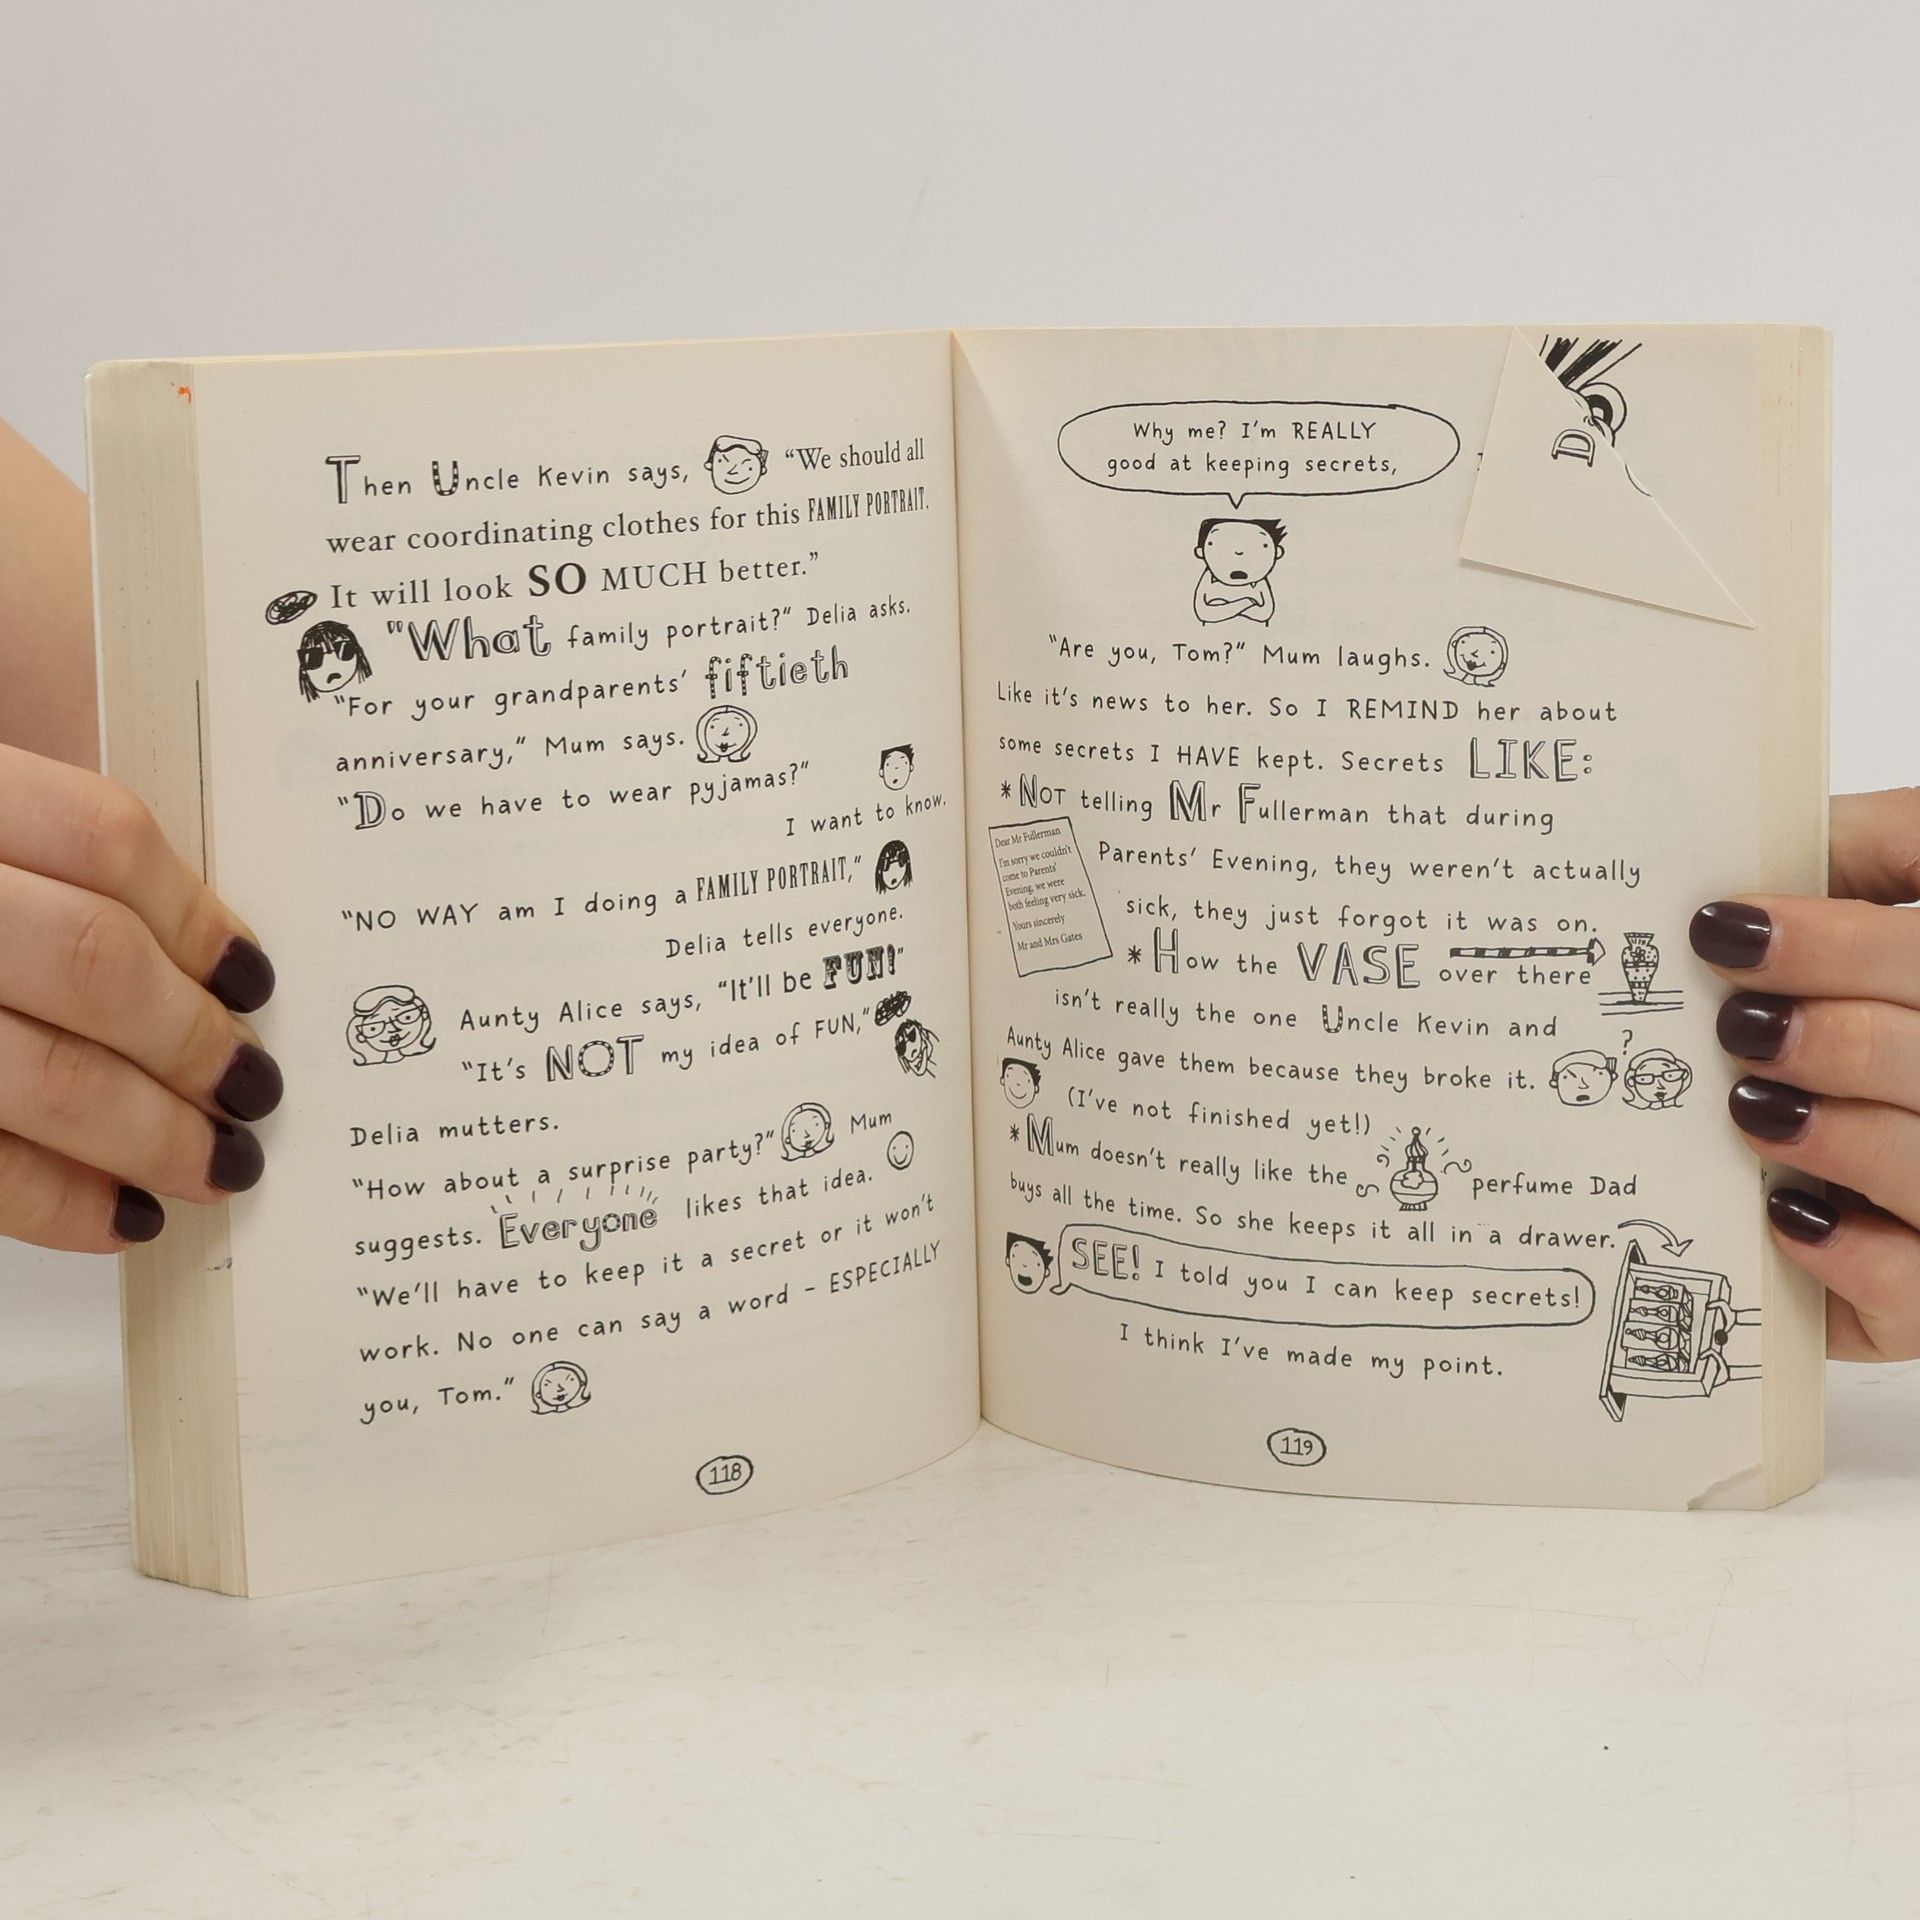 Then Uncle Kevin says, "We should all
wear coordinating clothes for this FAMILY PORTRAIT.
It will look SO MUCH better."
"What family portrait?" Delia asks.
"For your grandparents' fiftieth
anniversary," Mum says.
"Do we have to wear pyjamas?"
I want to know.
"NO WAY am I doing a FAMILY PORTRAIT,"
Delia tells everyone.
Aunty Alice says, "It'll be FUN!"
"It's NOT my idea of FUN,"
Delia mutters.
"How about a surprise party?" Mum
suggests. Everyone likes that idea.
"We'll have to keep it a secret or it won't
work. No one can say a word - ESPECIALLY
you, Tom."
118
Why me? I'm REALLY
good at keeping secrets,
D
"Are you, Tom?" Mum laughs.
Like it's news to her. So I REMIND her about
some secrets I HAVE kept. Secrets LIKE:
* NOT telling Mr Fullerman that during
Parents' Evening, they weren't actually
sick, they just forgot it was on.
Dear Mr Fullerman
I'm sorry we couldn't
come to Parents'
Evening, we were
both feeling very sick.
Yours sincerely
Mr and Mrs Gates
* How the VASE over there
isn't really the one Uncle Kevin and
Aunty Alice gave them because they broke it.
?
(I've not finished yet!)
* Mum doesn't really like the perfume Dad
buys all the time. So she keeps it all in a drawer.
SEE! I told you I can keep secrets!
I think I've made my point.
119